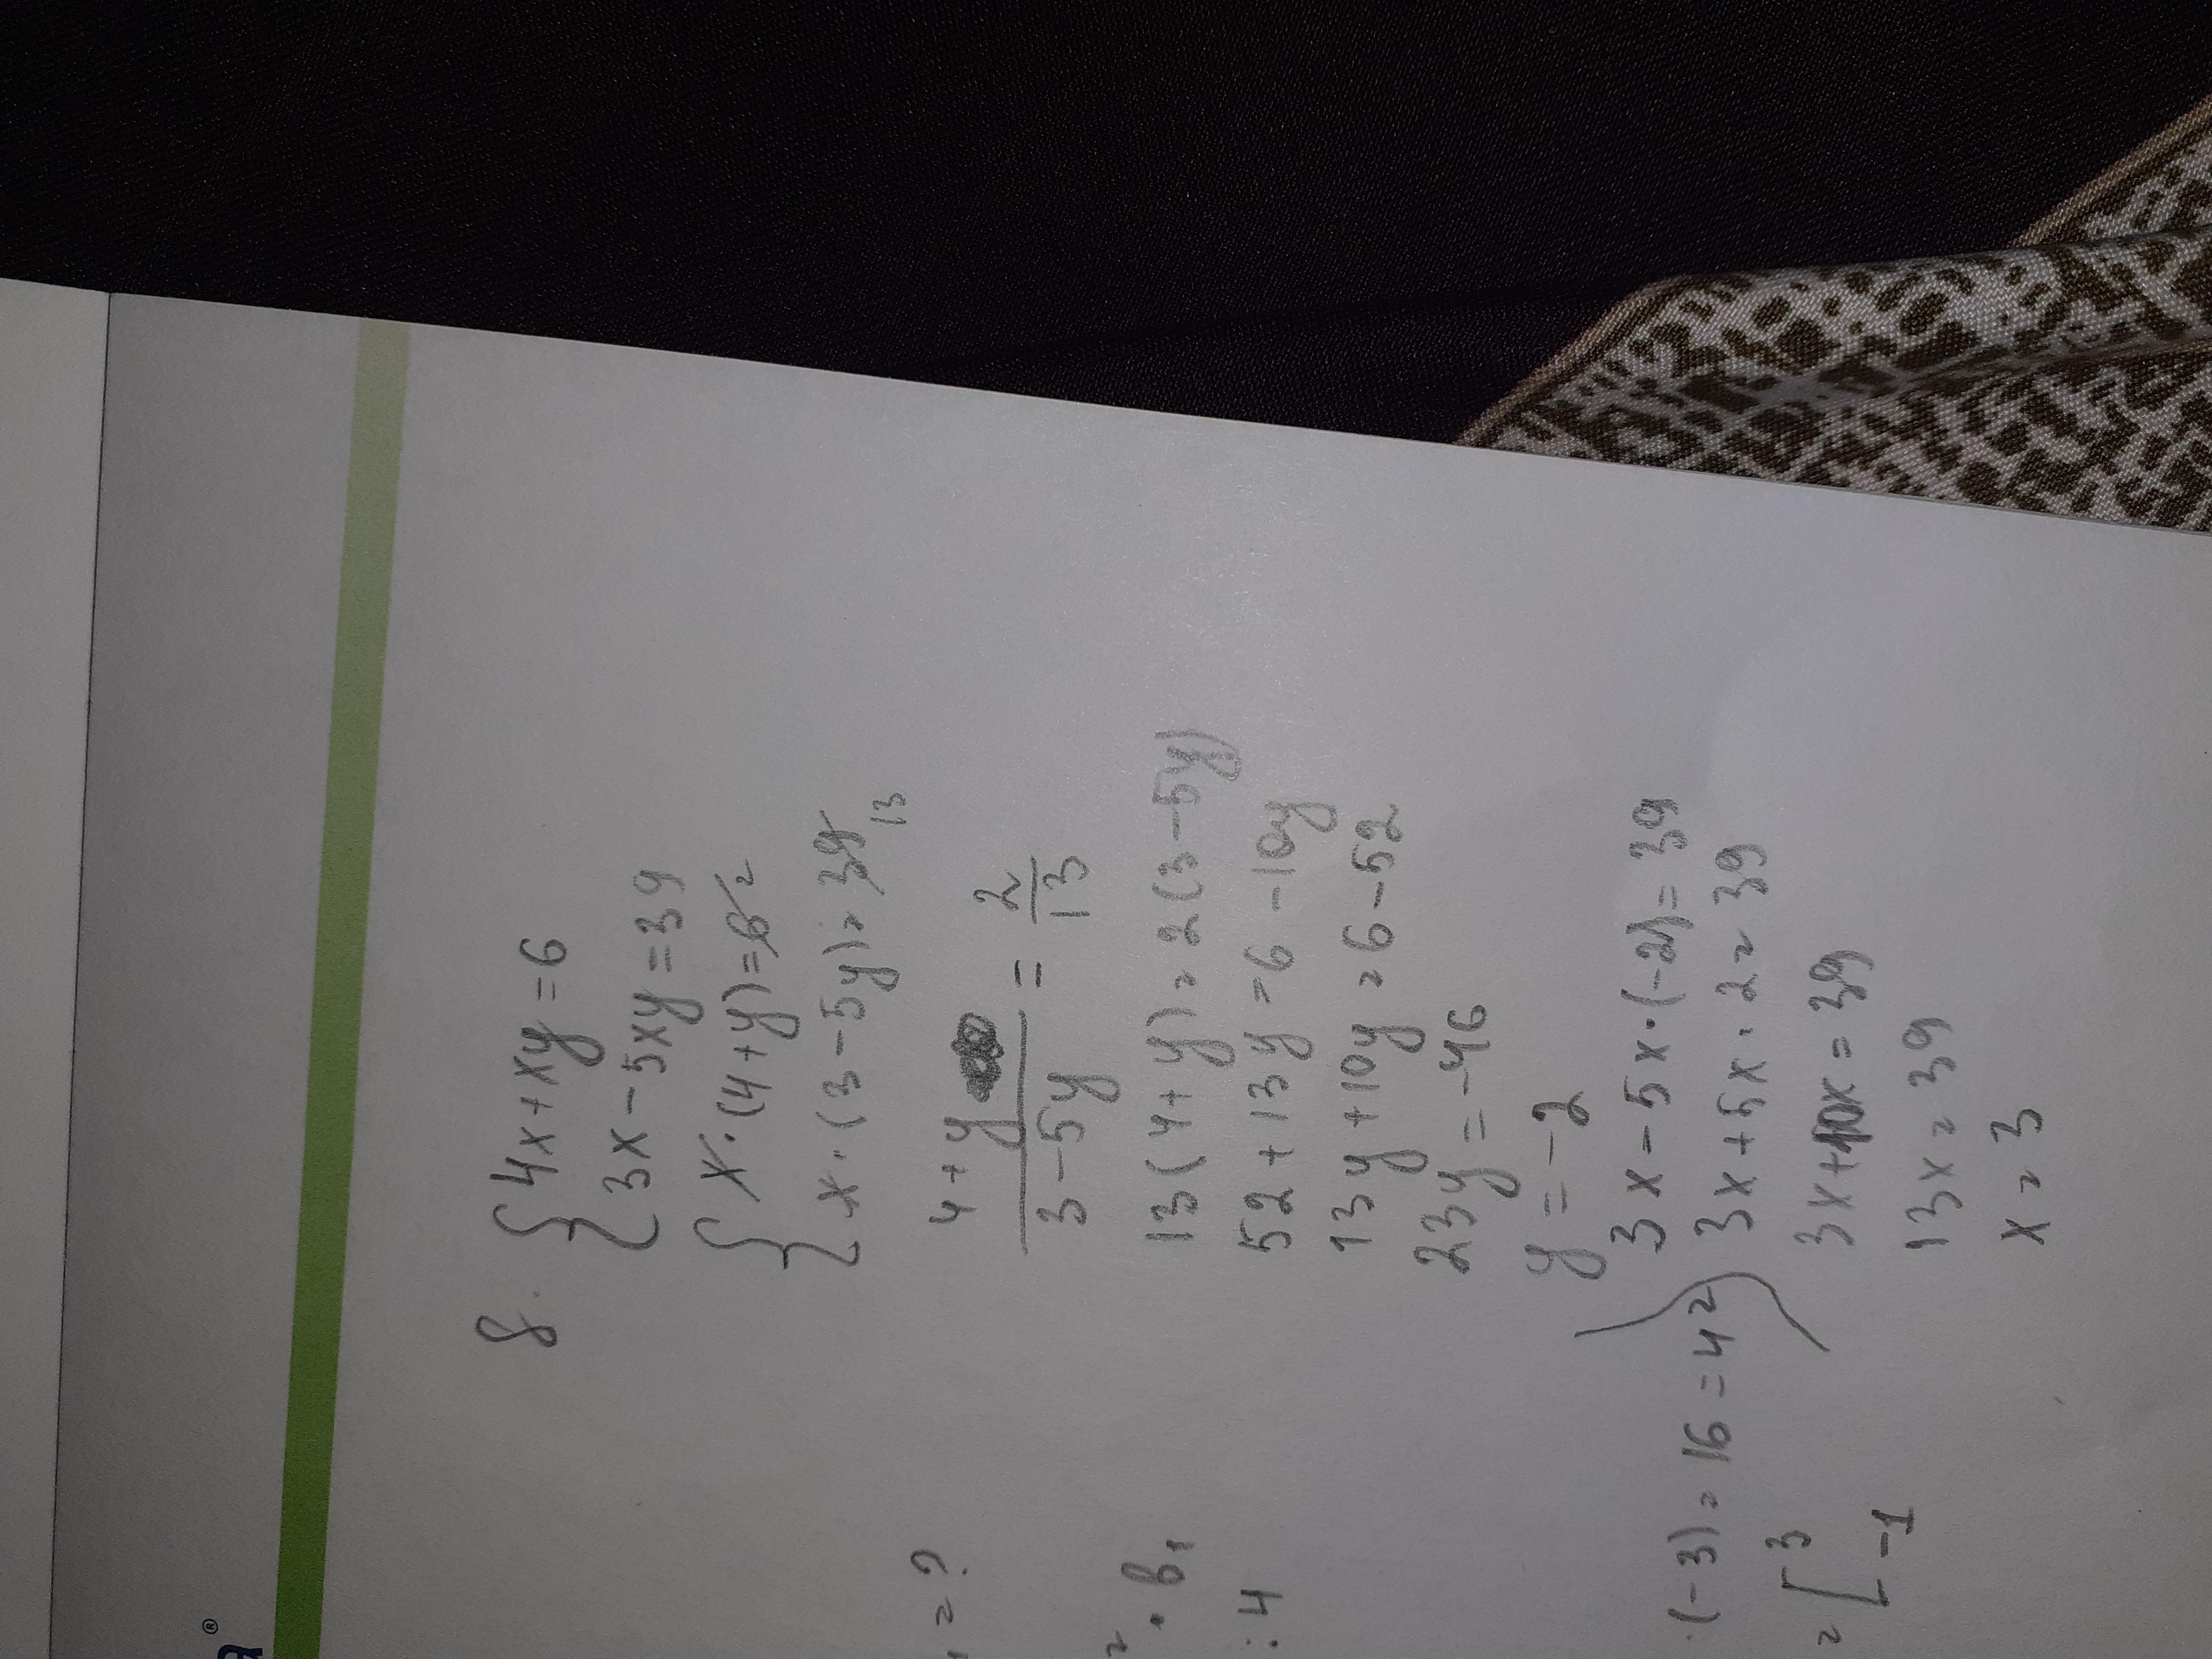 8. {4x+xy=6
{3x-5xy=39
{x·(4+y)=6 2
x·(3-5y)=39 13
4+y/3-5y = 2/13
13(4+y)=2(3-5y)
52+13y=6-10y
13y+10y=6-52
23y=-46
y=-2
3x-5x·(-2)=39
3x+5x·2=39
3x+10x=39
13x=39
x=3
=?
2 · b1
:4
·(-3)=16=4²
=[3
-1
®